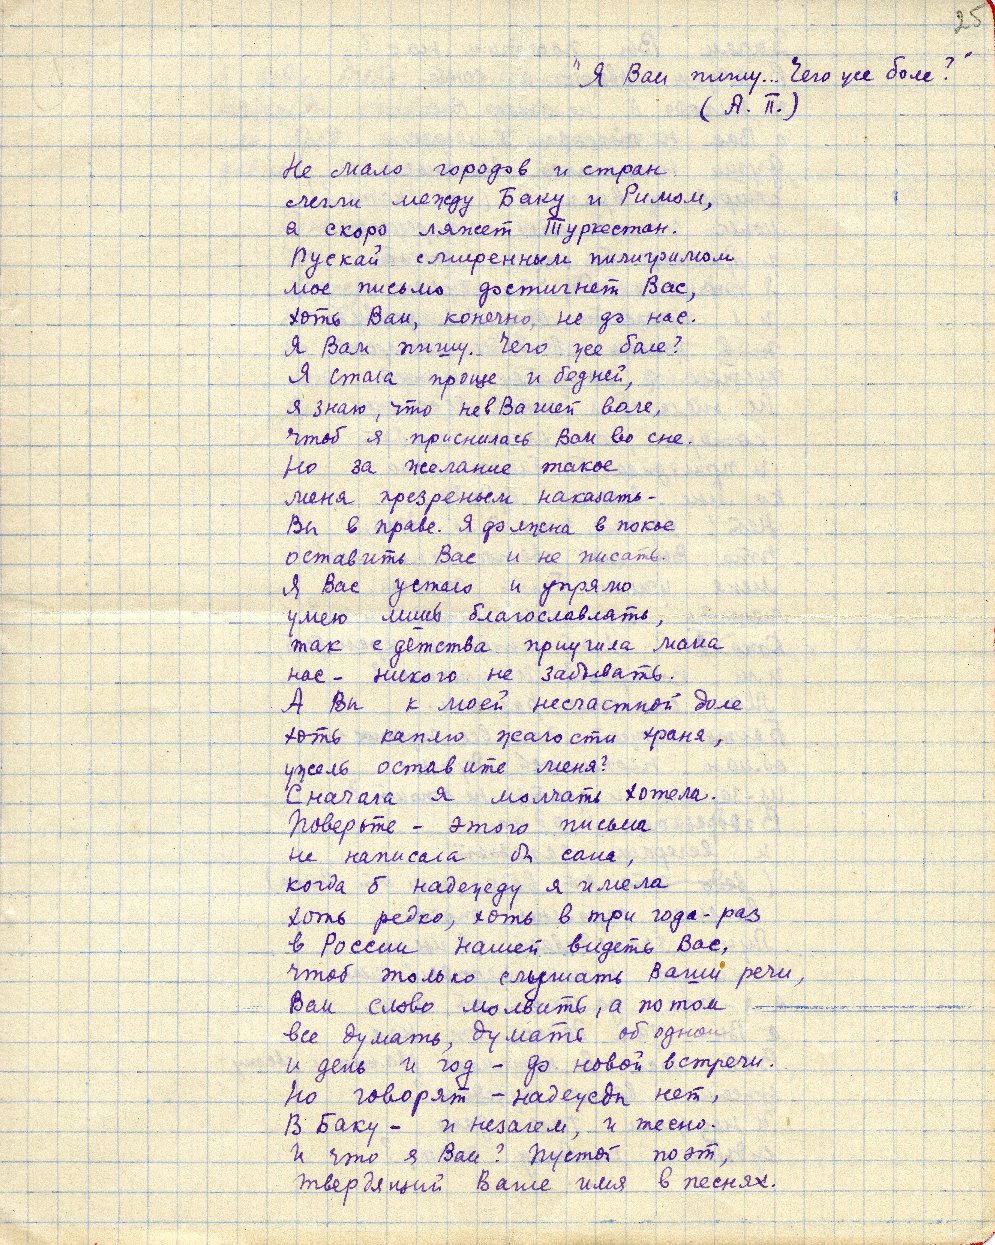 25
"Я Вам пишу... Чего же боле?"
(А. П.)
Не мало городов и стран
легли между Баку и Римом,
а скоро ляжет Туркестан.
Пускай смиренным пилигримом
мое письмо достигнет Вас,
хоть Вам, конечно, не до нас.
Я Вам пишу. Чего же боле?
Я стала проще и бедней,
я знаю, что не в Вашей воле,
чтоб я приснилась Вам во сне.
Но за желание такое
меня презреньем наказать -
Вы в праве. Я должна в покое
оставить Вас и не писать.
Я Вас устало и упрямо
умею лишь благославлять,
так с детства приучила мама
нас - никого не забывать.
А Вы к моей несчастной доле
хоть каплю жалости храня,
ужель оставите меня?
Сначала я молчать хотела.
Поверьте - этого письма
не написала бы сама,
когда б надежду я имела
хоть редко, хоть в три года - раз
в России нашей видеть Вас,
чтоб только слышать Ваши речи,
Вам слово молвить, а потом
все думать, думать об одном
и день и год - до новой встречи.
Но говорят - надежды нет,
В Баку - и незачем, и тесно.
И что я Вам? Пустой поэт,
твердящий Ваше имя в песнях.